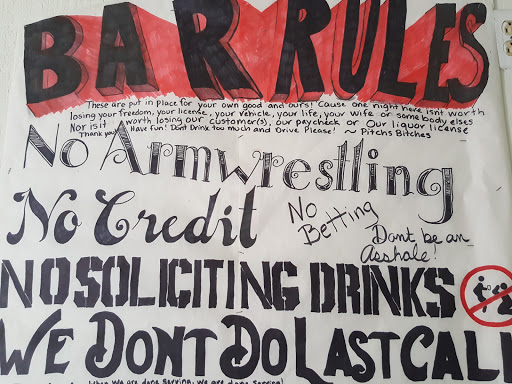 BAR RULES
These are put in place for your own good and ours! Cause one night here isnt worth
losing your freedom, your license, your vehicle, your life, your wife or some body elses
Nor is it worth losing our customer(s), our paycheck or Our liquor license
Thank you! Have fun! Dont Drink too much and Drive Please! ~ Pitchs Bitches
No Armwrestling
No Credit
No
Betting
Dont be an
asshole!
NO SOLICITING DRINKS
WE DONT DO LAST CALL
When we are done serving, we are done serving!